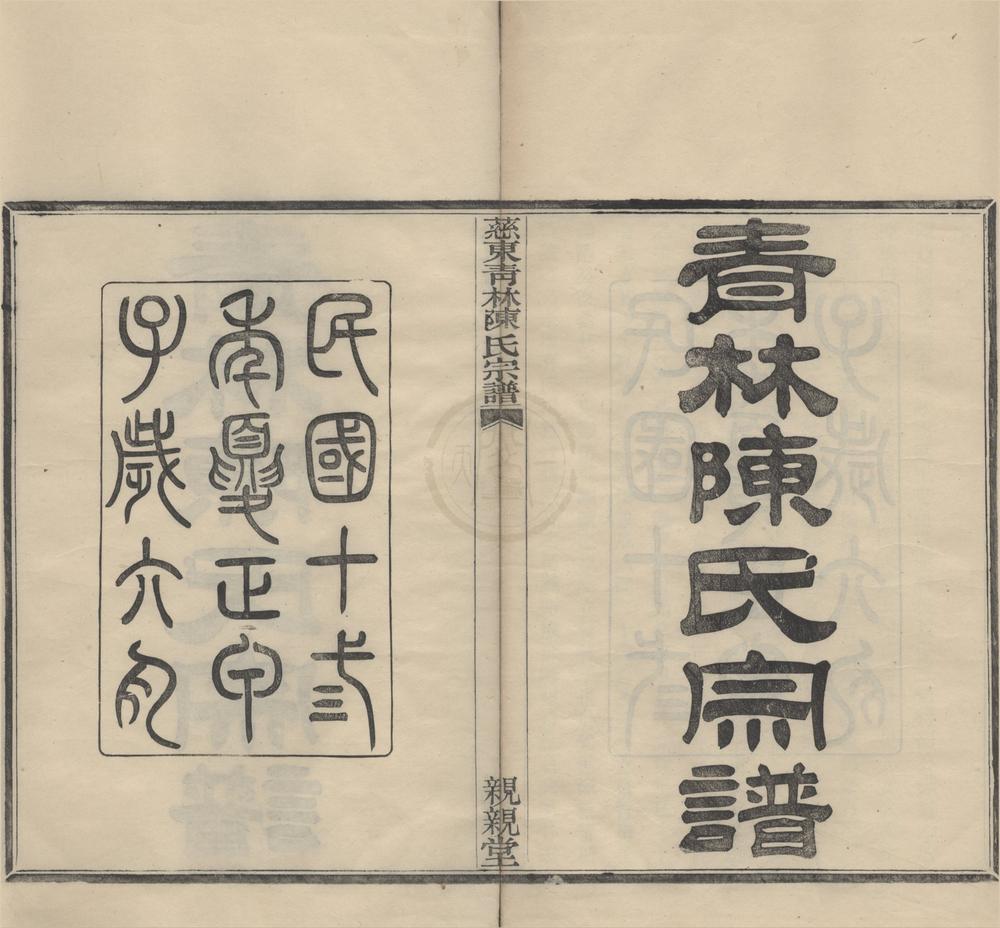 青林陳氏宗譜
慈東青林陳氏宗譜
親親堂
民國十弎
年夏正甲
子歲六月